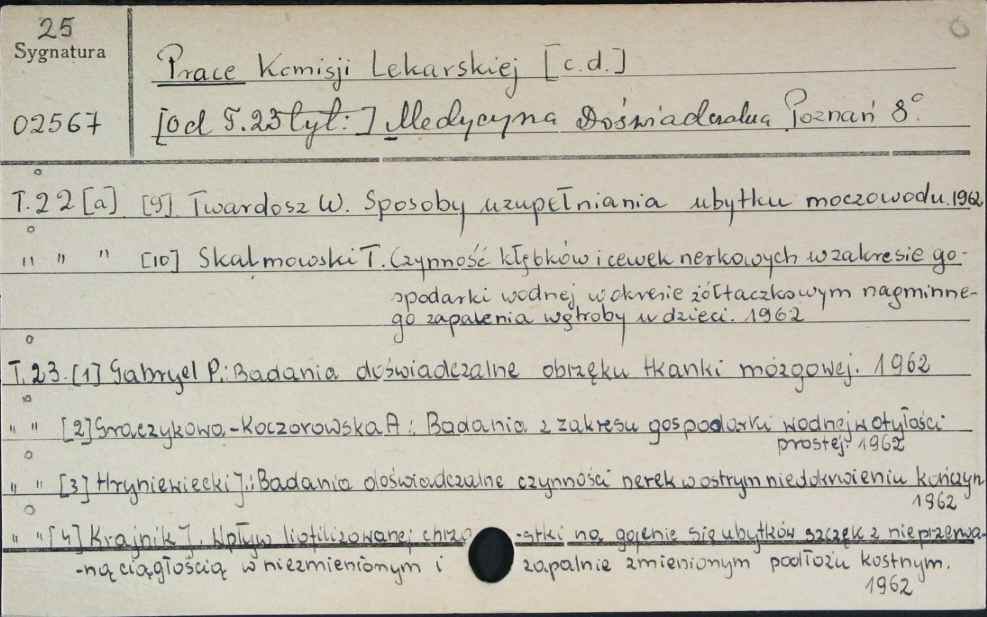 25
Sygnatura
02567
Prace Komisji Lekarskiej [c.d.]
[od T.23 tyt:] Medycyna Doświadczalna Poznań 8°
T.22[a] [9] Twardosz W. Sposoby uzupełniania ubytku moczowodu. 1962
" " " [10] Skałmowski T. Czynność kłębków i cewek nerkowych w zakresie go-
spodarki wodnej w okresie żółtaczkowym nagminne-
go zapalenia wątroby u dzieci. 1962
T.23. [1] Gabryel P.: Badania doświadczalne obrzęku tkanki mózgowej. 1962
" " [2] Graczykowa-Koczorowska A: Badania z zakresu gospodarki wodnej w otyłości
prostej. 1962
" " [3] Hryniewiecki J.: Badania doświadczalne czynności nerek w ostrym niedokrwieniu kończyn
1962
" " [4] Krajnik J. Wpływ liofilizowanej chrzą -stki na gojenie się ubytków szczęk z nieprzerwa-
-ną ciągłością w niezmienionym i zapalnie zmienionym podłożu kostnym.
1962